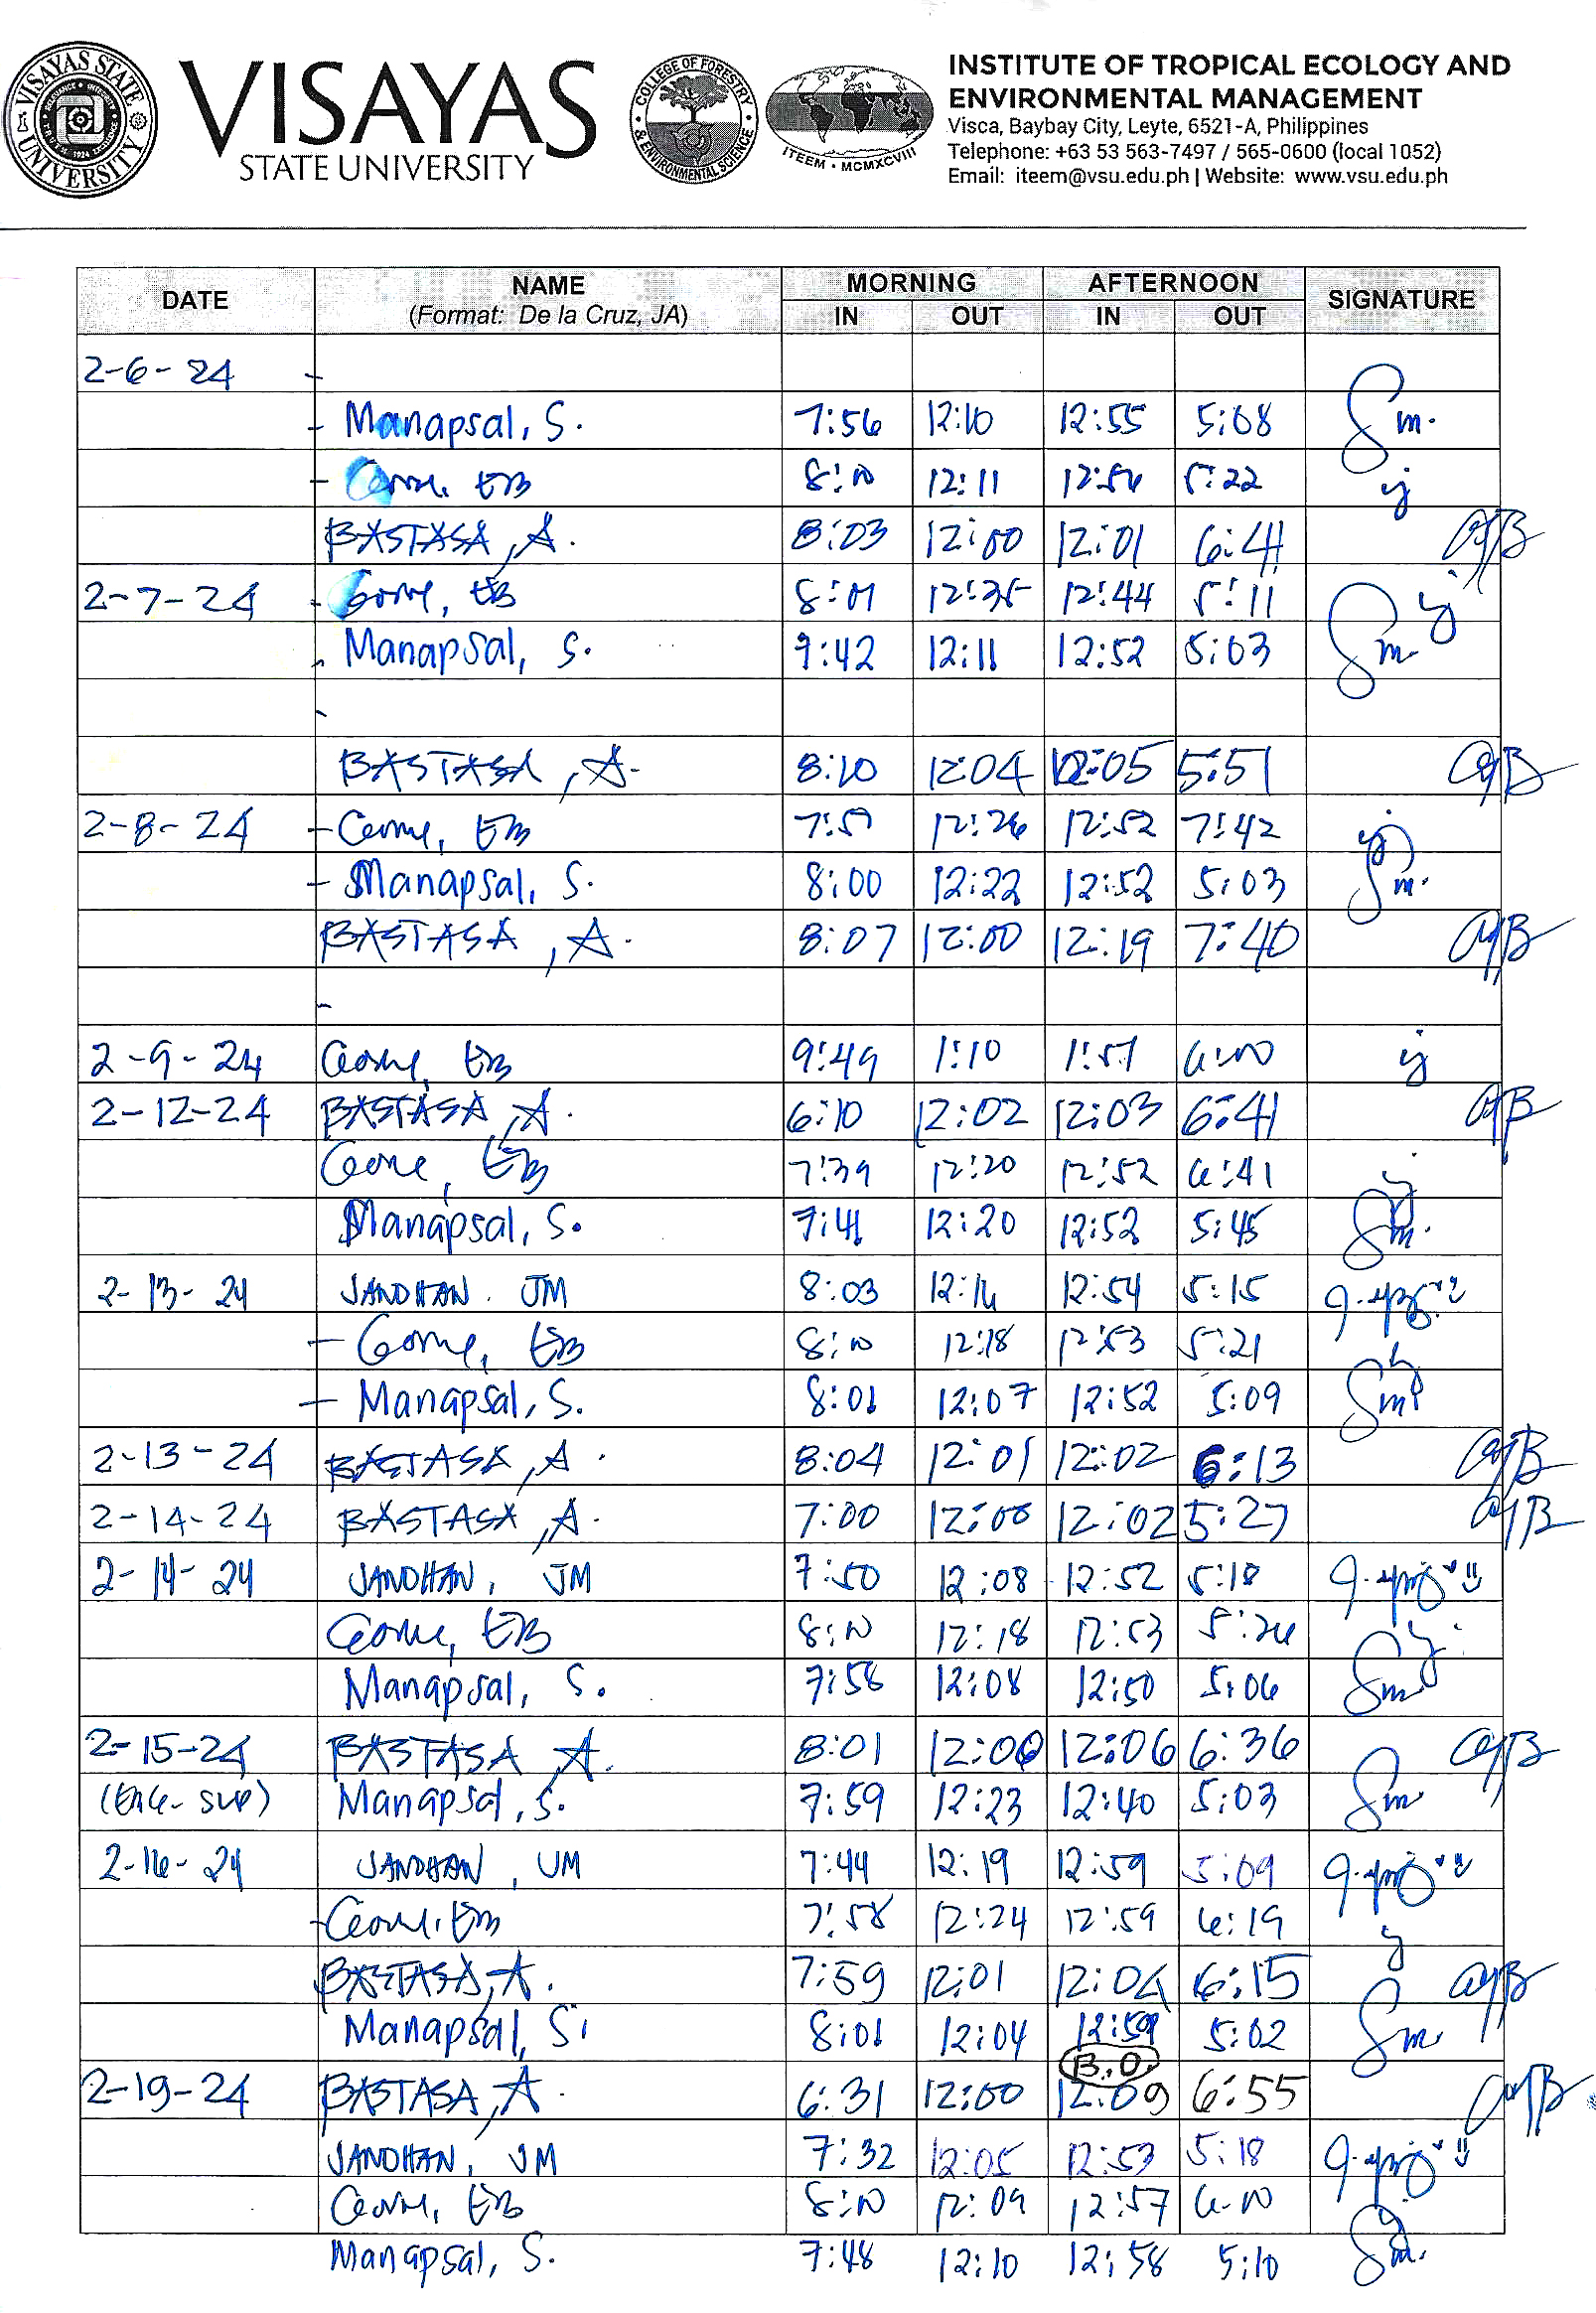 VISAYAS STATE UNIVERSITY
VISAYAS
STATE UNIVERSITY
COLLEGE OF FORESTRY & ENVIRONMENTAL SCIENCE
ITEEM • MCMXCVIII
INSTITUTE OF TROPICAL ECOLOGY AND
ENVIRONMENTAL MANAGEMENT
Visca, Baybay City, Leyte, 6521-A, Philippines
Telephone: +63 53 563-7497 / 565-0600 (local 1052)
Email: iteem@vsu.edu.ph | Website: www.vsu.edu.ph
DATE NAME MORNING AFTERNOON SIGNATURE
(Format: De la Cruz, JA) IN OUT IN OUT
2-6-24
Manapsal, S. 7:56 12:10 12:55 5:08 Sm.
EB 12:11 5:22
BASTASA, A. 8:03 12:00 12:01 6:41 AJB
2-7-24 EB 12:44 5:11
Manapsal, S. 9:42 12:11 12:52 5:03 Sm.
BASTASA, A. 8:10 12:04 12:05 5:51 AJB
2-8-24 EB 12:26 12:52 7:42
Manapsal, S. 8:00 12:22 12:52 5:03 Sm.
BASTASA, A. 8:07 12:00 12:19 7:40 AJB
2-9-24 EB 9:49 1:10
2-12-24 BASTASA, A. 6:10 12:02 12:03 6:41 AJB
EB 7:39 12:20 12:52 6:41
Manapsal, S. 7:41 12:20 12:52 5:45 Sm.
2-13-24 JANDHAN. JM 8:03 12:54 5:15
EB 12:18 12:53 5:21
Manapsal, S. 8:01 12:07 12:52 5:09 Sm
2-13-24 BASTASA, A. 8:04 12:01 12:02 6:13 AJB
2-14-24 BASTASA, A. 7:00 12:00 12:02 5:27 AJB
2-14-24 JANDHAN, JM 7:50 12:08 12:52 5:18
EB 12:18 12:53 5:26
Manapsal, S. 7:58 12:08 12:50 5:06 Sm
2-15-24 BASTASA, A. 8:01 12:00 12:06 6:36 AJB
Manapsal, S. 7:59 12:23 12:40 5:03 Sm.
2-16-24 JANDHAN, JM 7:44 12:19 12:59 5:09
EB 7:58 12:24 12:59 6:19
BASTASA, A. 7:59 12:01 12:04 6:15 AJB
Manapsal, S. 8:01 12:04 12:59 5:02 Sm.
B.O.
2-19-24 BASTASA, A. 6:31 12:00 12:09 6:55 AJB
JANDHAN, JM 7:32 12:05 12:53 5:18
EB 12:09 12:57
Manapsal, S. 7:48 12:10 12:58 5:10 Sm.